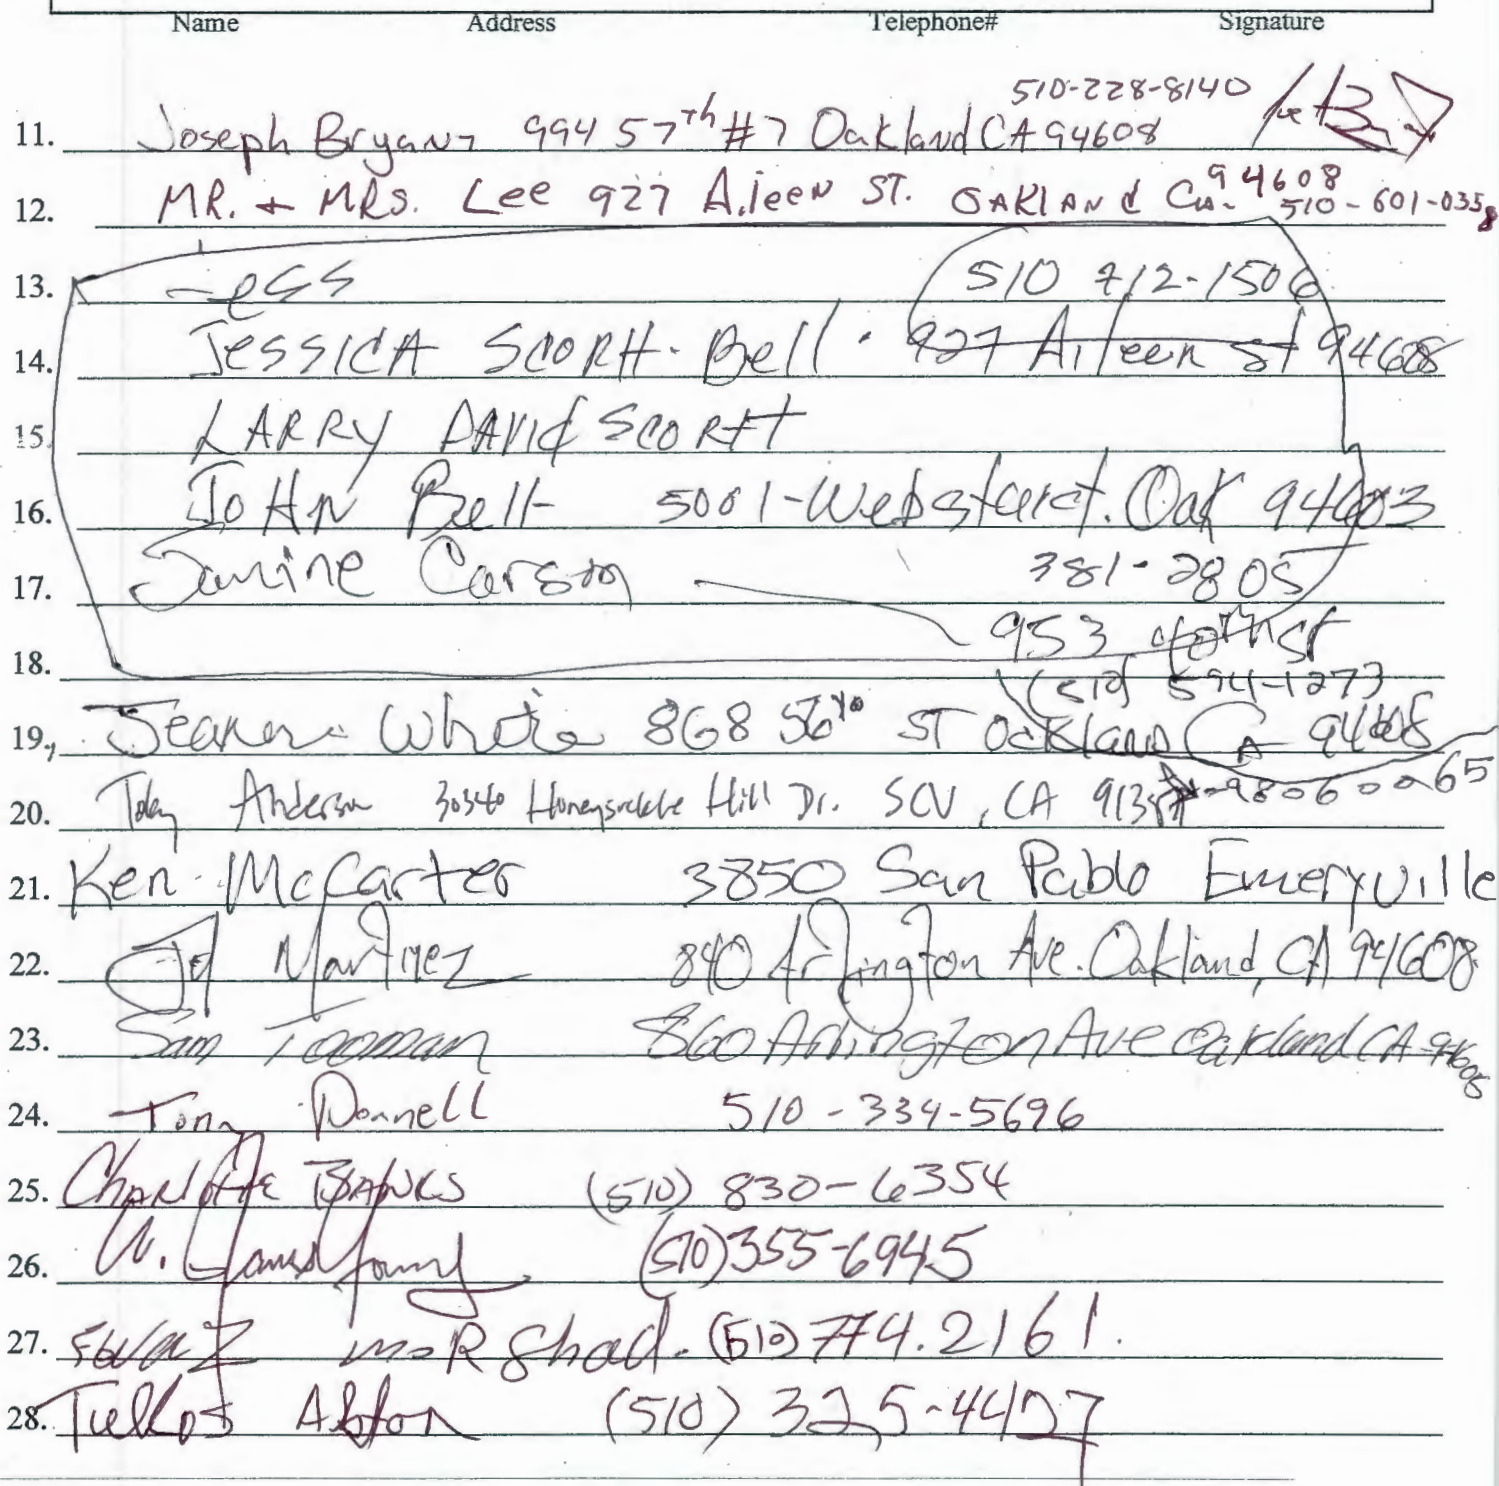 Name Address Telephone# Signature
510-228-8140
11. Joseph Bryant 994 57th #7 Oakland CA 94608
12. MR. + MRS. Lee 927 Aileen ST. OAKLANd Ca. 94608
510-601-0358
13. 510 712-1506
14. JESSICA SCORH-Bell. 927 Aileen st 94608
15. LARRY DAVId SCORH
16. JOHN Bell 5001-Webster st. Oak 94603
17. Janine Carson 381-2805
18. 953 40th st
(510) 594-1273
19. White 868 56th ST Oakland CA 94608
20. Toby Anderson 30340 Honeysuckle Hill Dr. SCV, CA
21. Ken McCarter 3850 San Pablo Emeryville
22. Martinez 840 Arlington Ave. Oakland, CA 94608
23. Sam Tooman 860 Arlington Ave Oakland CA 94608
24. Tony Donnell 510-334-5696
25. Charlotte BANKS (510) 830-6354
26. (510)355-6945
27. morshad. (510) 774.2161.
28. Alston (510) 325-4427